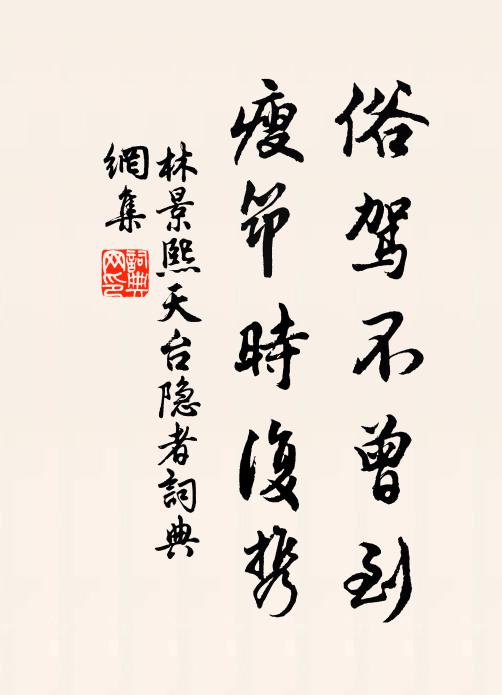 俗駕不曾到
瘦筇時復携
林景熙天台隐者詞典
網集
詞典网印